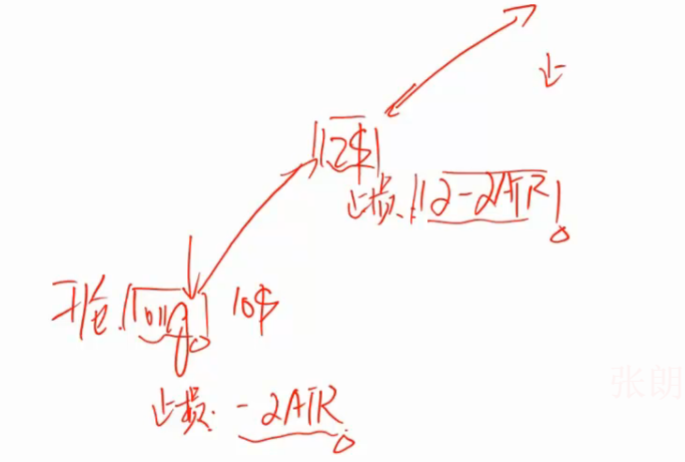 止
12$
止损. 12-2ATR
开仓. long 10$
止损. -2ATR
张朗